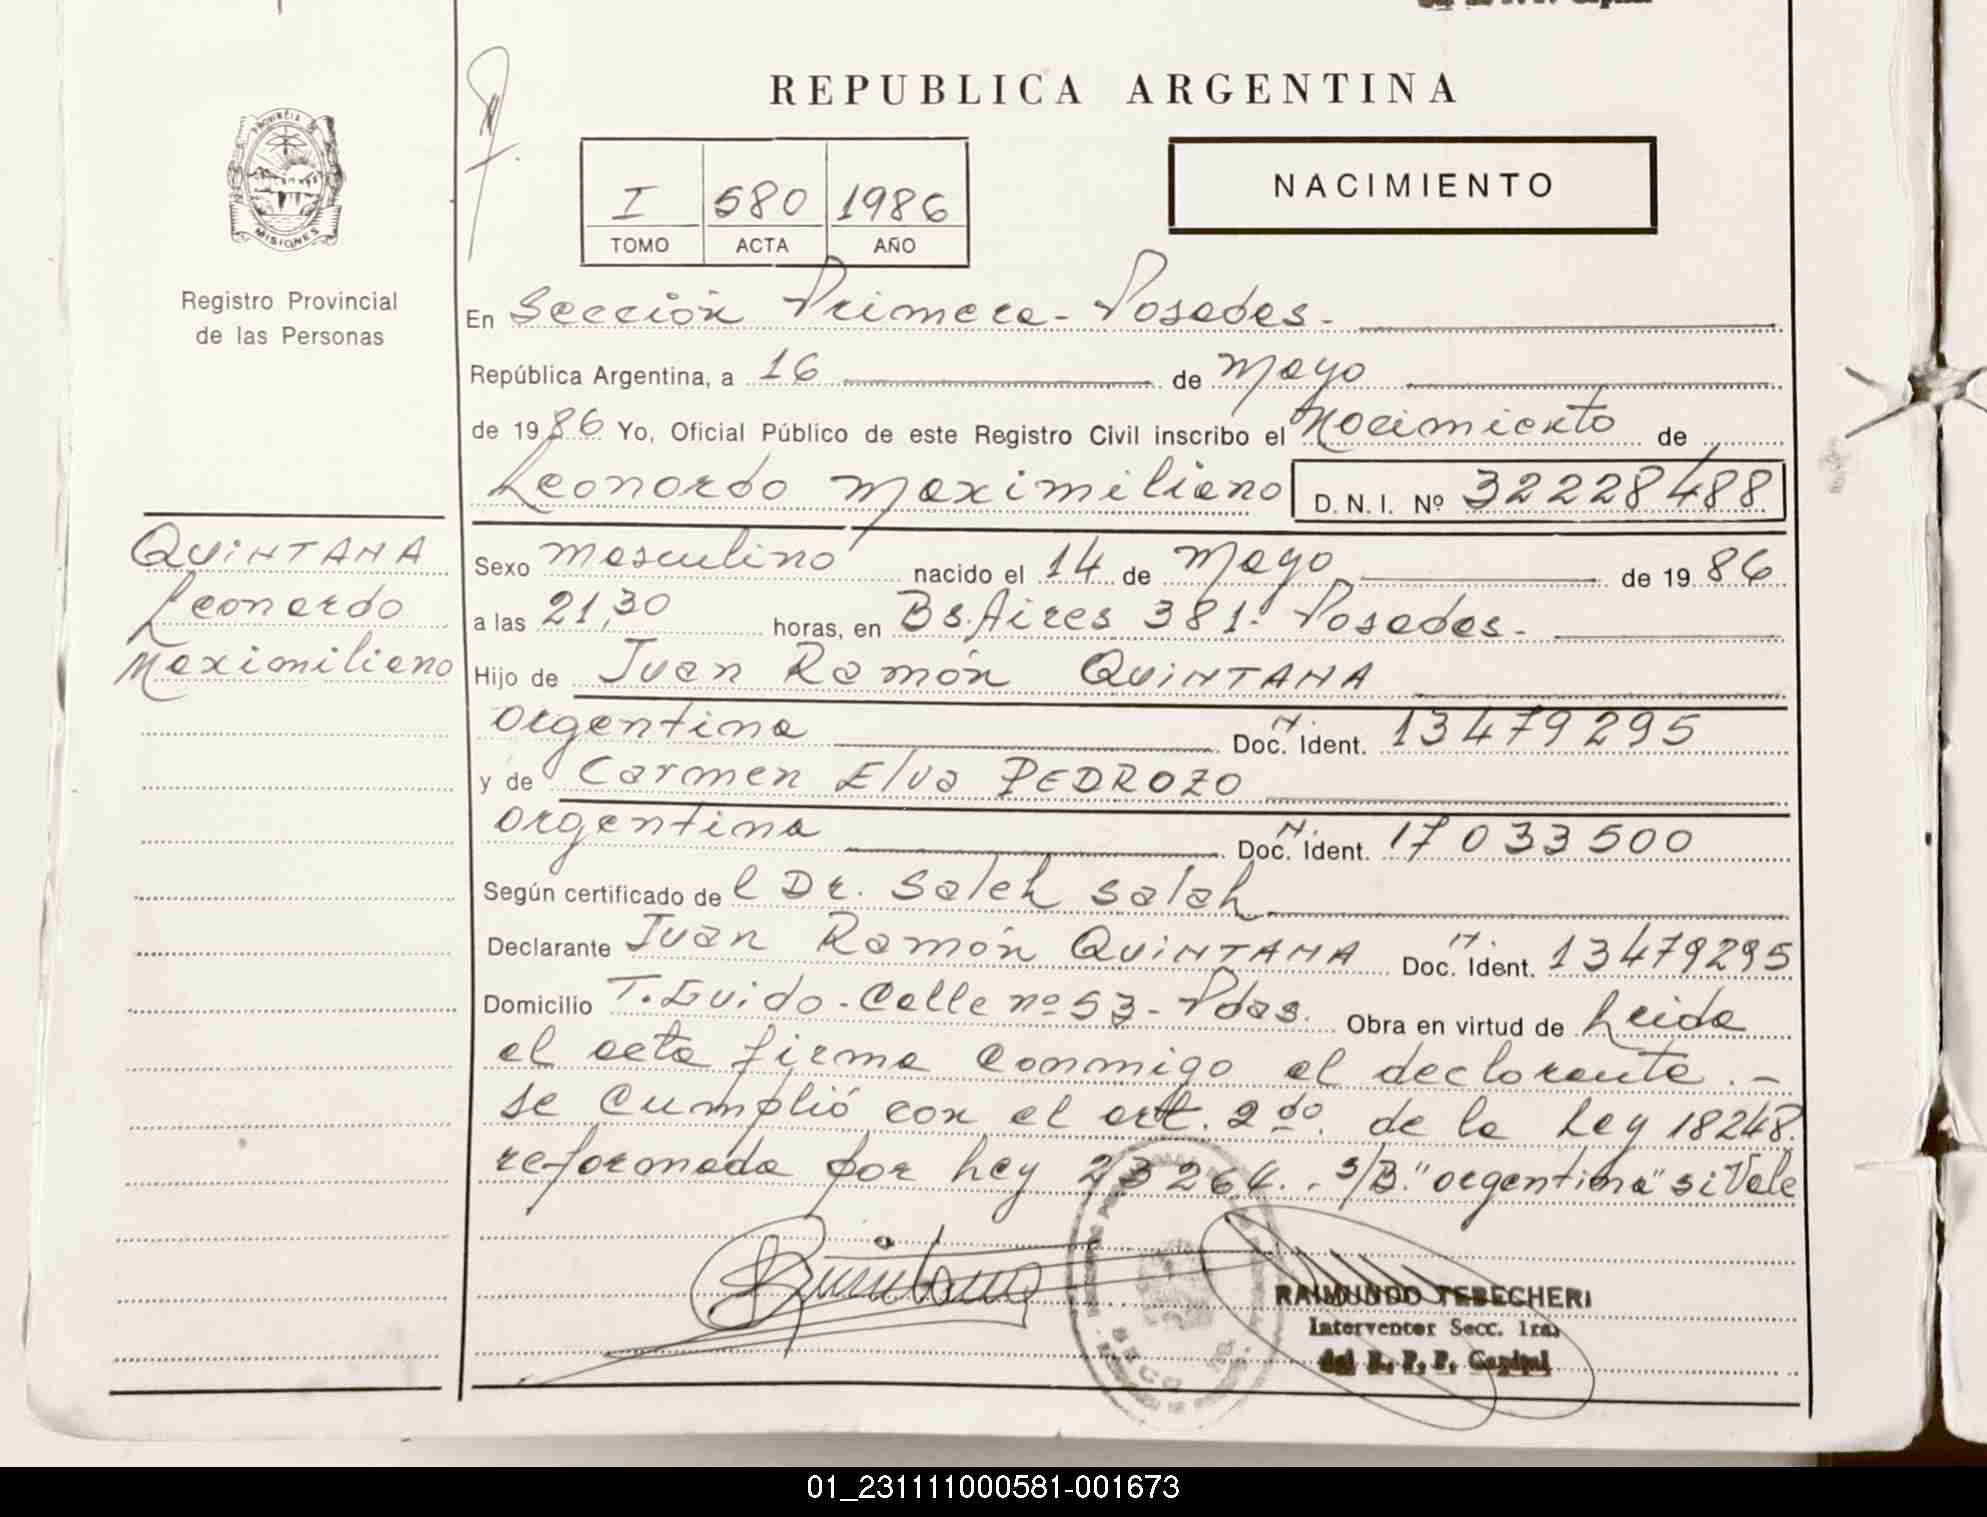 REPUBLICA ARGENTINA
PROVINCIA DE
MISIONES
Registro Provincial
de las Personas
I 580 1986
TOMO ACTA AÑO
NACIMIENTO
En Sección Primera - Posadas -
República Argentina, a 16 de Mayo
de 1986 Yo, Oficial Público de este Registro Civil inscribo el Nacimiento de
Leonardo Maximiliano D.N.I. Nº 32228488
QUINTANA
Leonardo
Maximiliano
Sexo Masculino nacido el 14 de Mayo de 1986
a las 21,30 horas, en Bs. Aires 381 - Posadas -
Hijo de Juan Ramón QUINTANA
argentina Doc. N. Ident. 13479295
y de Carmen Elva PEDROZO
argentina Doc. N. Ident. 17033500
Según certificado del Dr. Saleh Salah
Declarante Juan Ramón QUINTANA Doc. N. Ident. 13479295
Domicilio T. Guido - Calle nº 53 - Pdas. Obra en virtud de Leida
el acta firma conmigo el declarante . -
se cumplió con el art. 2do. de la Ley 18248.
reformada por Ley 23264. . s/B. "argentina" si Vale
Quintana
RAIMUNDO TEBECHERI
Interventor Secc. 1ra.
del R. P. P. Capital
01_231111000581-001673